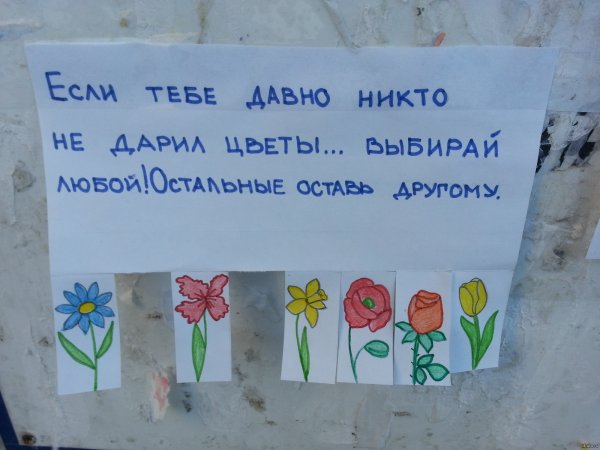 Если тебе давно никто
не дарил цветы... выбирай
любой! Остальные оставь другому.